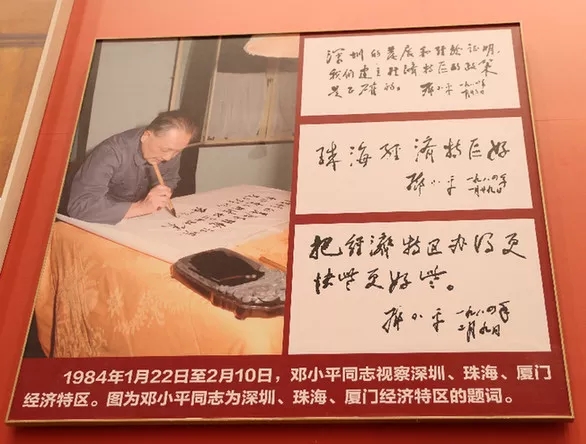 深圳的发展和经验证明，
我们建立经济特区的政策
是正确的。 邓小平 一九八四年
珠海经济特区好
邓小平 一九八四年
一月廿九日
把经济特区办得更
快些更好些。
邓小平 一九八四年
二月九日
1984年1月22日至2月10日，邓小平同志视察深圳、珠海、厦门
经济特区。图为邓小平同志为深圳、珠海、厦门经济特区的题词。